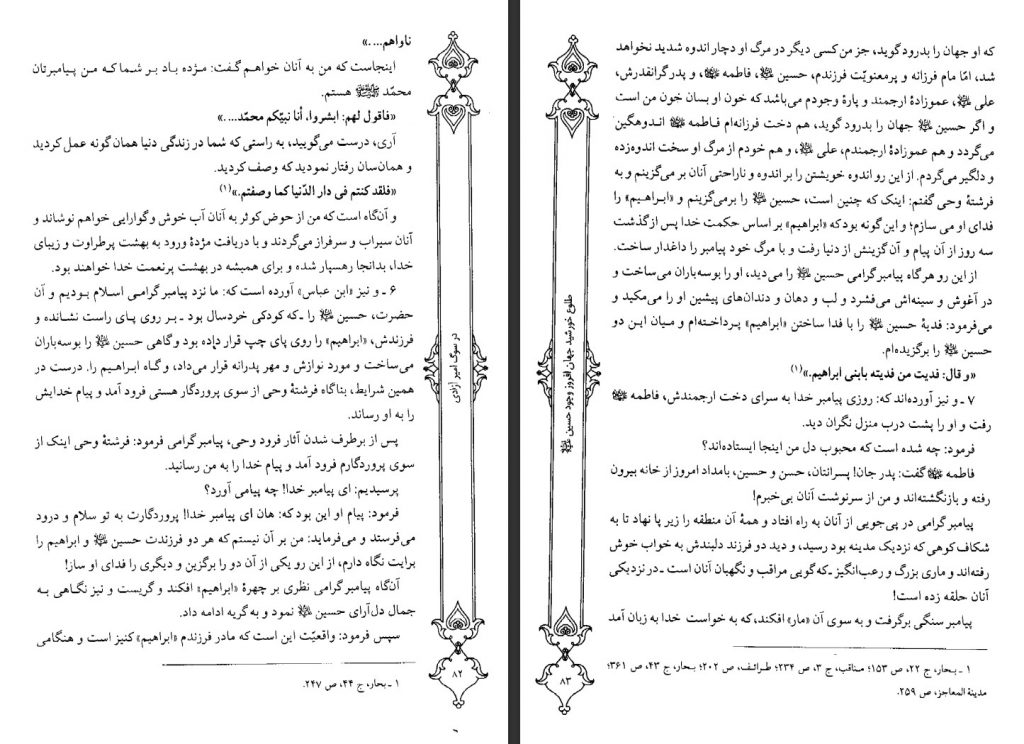 ناواهم....»
اینجاست که من به آنان خواهم گفت: مژده باد بر شما که من پیامبرتان
محمّد ﷺ هستم.
«فاقول لهم: ابشروا، أنا نبیّکم محمّد....»
آری، درست می‌گویید، به راستی که شما در زندگی دنیا همان گونه عمل کردید
و همان‌سان رفتار نمودید که وصف کردید.
«فلقد کنتم فی دار الدّنیا کما وصفتم.»(۱)
و آن‌گاه است که من از حوض کوثر به آنان آب خوش وگوارایی خواهم نوشاند و
آنان سیراب و سرفراز می‌گردند و با دریافت مژدهٔ ورود به بهشت پرطراوت و زیبای
خدا، بدانجا رهسپار شده و برای همیشه در بهشت پرنعمت خدا خواهند بود.
۶ ـ و نیز «ابن عباس» آورده است که: ما نزد پیامبر گرامـی اسـلام بودیـم و آن
حضرت، حسین ؏ را ـ که کودکی خردسال بود ـ بر روی پای راست نشـانده و
فرزندش، «ابراهیم» را روی پای چپ قرار داده بود وگاهی حسین ؏ را بوسه‌باران
می‌ساخت و مورد نوازش و مهر پدرانه قرار می‌داد، و گـاه ابـراهیـم را. درست در
همین شرایط، بناگاه فرشتهٔ وحی از سوی پروردگار هستی فرود آمد و پیام خدایش
را به او رساند.
پس از برطرف شدن آثار فرود وحی، پیامبرگرامی فرمود: فرشتهٔ وحی اینک از
سوی پروردگارم فرود آمد و پیام خدا را به من رسانید.
پرسیدیم: ای پیامبر خدا! چه پیامی آورد؟
فرمود: پیام او این بود که: هان ای پیامبر خدا! پروردگارت به تو سلام و درود
می‌فرستد و می‌فرماید: من بر آن نیستم که هر دو فرزندت حسین ؏ و ابراهیم را
برایت نگاه دارم، از این رو یکی از آن دو را برگزین و دیگری را فدای او ساز!
آن‌گاه پیامبر گرامی نظری بر چهرهٔ «ابراهیم» افکند و گریست و نیز نگـاهی بـه
جمال دل‌آرای حسین ؏ نمود و به گریه ادامه داد.
سپس فرمود: واقعیّت این است که مادر فرزندم «ابراهیم» کنیز است و هنگامی
۱ ـ بحار، ج ۴۴، ص ۲۴۷.
در سوگ امیر آزادی
۸۲
۶
که او جهان را بدرود گوید، جز من کسی دیگر در مرگ او دچار اندوه شدید نخواهد
شد، امّا مام فرزانه و پرمعنویّت فرزندم، حسین ؏، فاطمه ؏، و پدر گرانقدرش،
علی ؏، عموزادهٔ ارجمند و پارهٔ وجودم می‌باشد که خون او بسان خون من است
و اگر حسین ؏ جهان را بدرود گوید، هم دخت فرزانه‌ام فـاطمه ؏ انـدوهگین
می‌گردد و هم عموزادهٔ ارجمندم، علی ؏، و هم خودم از مرگ او سخت اندوه‌زده
و دلگیر می‌گردم. از این رو اندوه خویشتن را بر اندوه و ناراحتی آنان بر می‌گزینم و به
فرشتهٔ وحی گفتم: اینک که چنین است، حسین ؏ را برمی‌گزینم و «ابـراهیـم» را
فدای او می سازم؛ و این گونه بود که «ابراهیم» بر اساس حکمت خدا پس از گذشت
سه روز از آن پیام و آن گزینش از دنیا رفت و با مرگ خود پیامبر را داغدار ساخت.
از این رو هرگاه پیامبرگرامی حسین ؏ را می‌دید، او را بوسه‌باران می‌ساخت و
در آغوش و سینه‌اش می‌فشرد و لب و دهان و دندان‌های پیشین او را می‌مکید و
می‌فرمود: فدیهٔ حسین ؏ را با فدا ساختن «ابراهیم» پرداختـه‌ام و میـان ایـن دو
حسین ؏ را برگزیده‌ام.
«و قال: فدیت من فدیته بابنی ابراهیم.»(۱)
۷ ـ و نیز آورده‌اند که: روزی پیامبر خدا به سرای دخت ارجمندش، فاطمه ؏
رفت و او را پشت درب منزل نگران دید.
فرمود: چه شده است که محبوب دل من اینجا ایستاده‌اند؟
فاطمه ؏ گفت: پدر جان! پسرانتان، حسن و حسین، بامداد امروز از خانه بیرون
رفته و بازنگشته‌اند و من از سرنوشت آنان بی‌خبرم!
پیامبر گرامی در پی‌جویی از آنان به راه افتاد و همهٔ آن منطقه را زیر پا نهاد تا به
شکاف کوهی که نزدیک مدینه بود رسید، و دید دو فرزند دلبندش به خواب خوش
رفته‌اند و ماری بزرگ و رعب‌انگیز ـ که گویی مراقب و نگهبان آنان است ـ در نزدیکی
آنان حلقه زده است!
پیامبر سنگی برگرفت و به سوی آن «مار» افکند، که به خواست خدا به زبان آمد
۱ ـ بحار، ج ۲۲، ص ۱۵۳؛ مناقب، ج ۳، ص ۲۳۴؛ طرائف، ص ۲۰۲؛ بحار، ج ۴۳، ص ۳۶۱؛
مدینة المعاجز، ص ۲۵۹.
طلوع خورشید جهان افروز وجود حسین ؏
۸۳